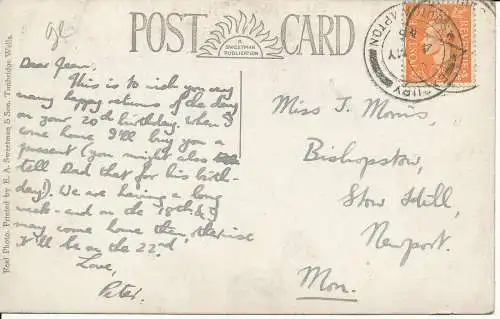 ge
POST CARD
A
SWEETMAN
PUBLICATION
Real Photo. Printed by E. A. Sweetman & Son, Tunbridge Wells.
Dear Jean,
This is to wish you very
many happy returns of the day
on your 20th birthday. When I
come home I'll buy you a
present (you might also
tell Dad that for his birth-
day). We are having a long
week-end on the 18th & I
may come home then, otherwise
I'll be on the 22nd.
Love,
Peter.
Miss J. Morris,
Bishopstow,
Stow Hill,
Newport.
Mon.
CLAPTON